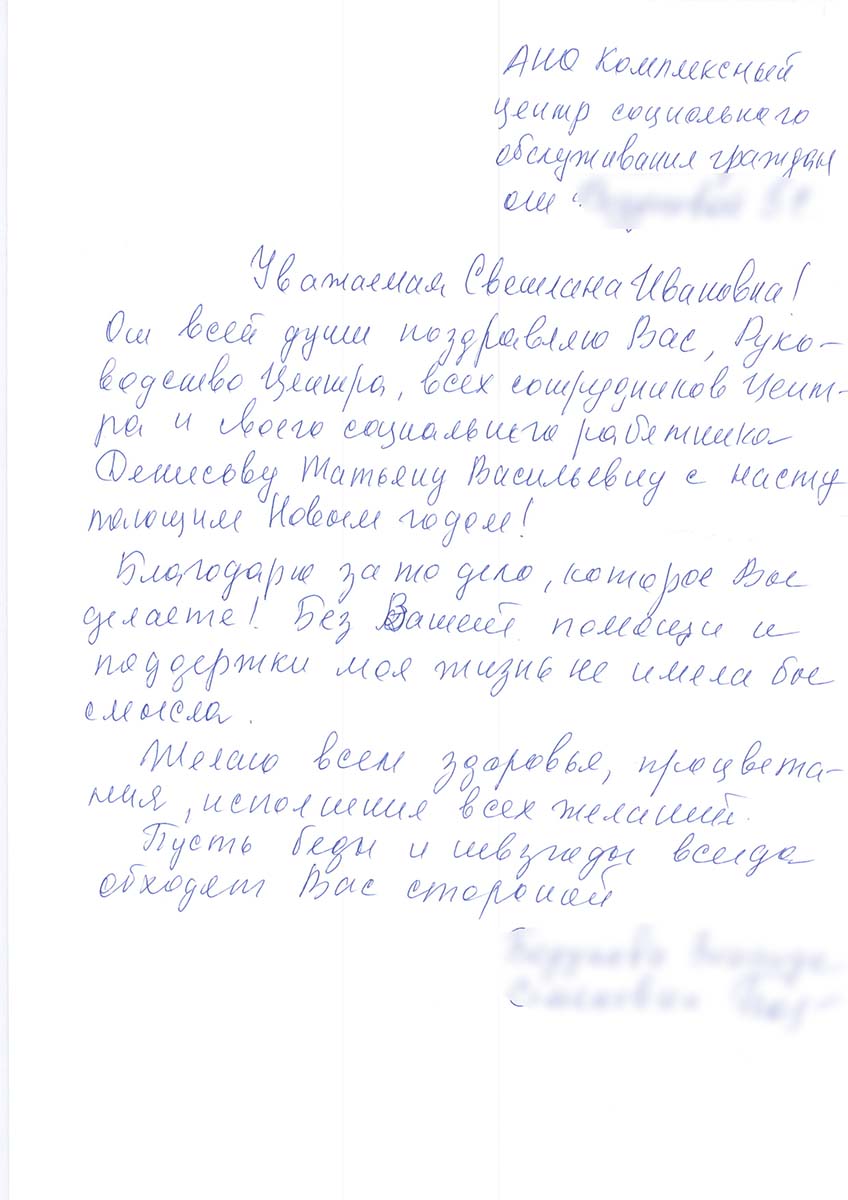 АНО Комплексный
центр социального
обслуживания граждан
от
Уважаемая Светлана Ивановна!
От всей души поздравляю Вас, Руко-
водство Центра, всех сотрудников Цент-
ра и своего социального работника
Денисову Татьяну Васильевну с насту
пающим Новым годом!
Благодарю за то дело, которое Вы
делаете! Без Вашей помощи и
поддержки моя жизнь не имела бы
смысла.
Желаю всем здоровья, процвета-
ния, исполнения всех желаний.
Пусть беды и невзгоды всегда
обходят Вас стороной